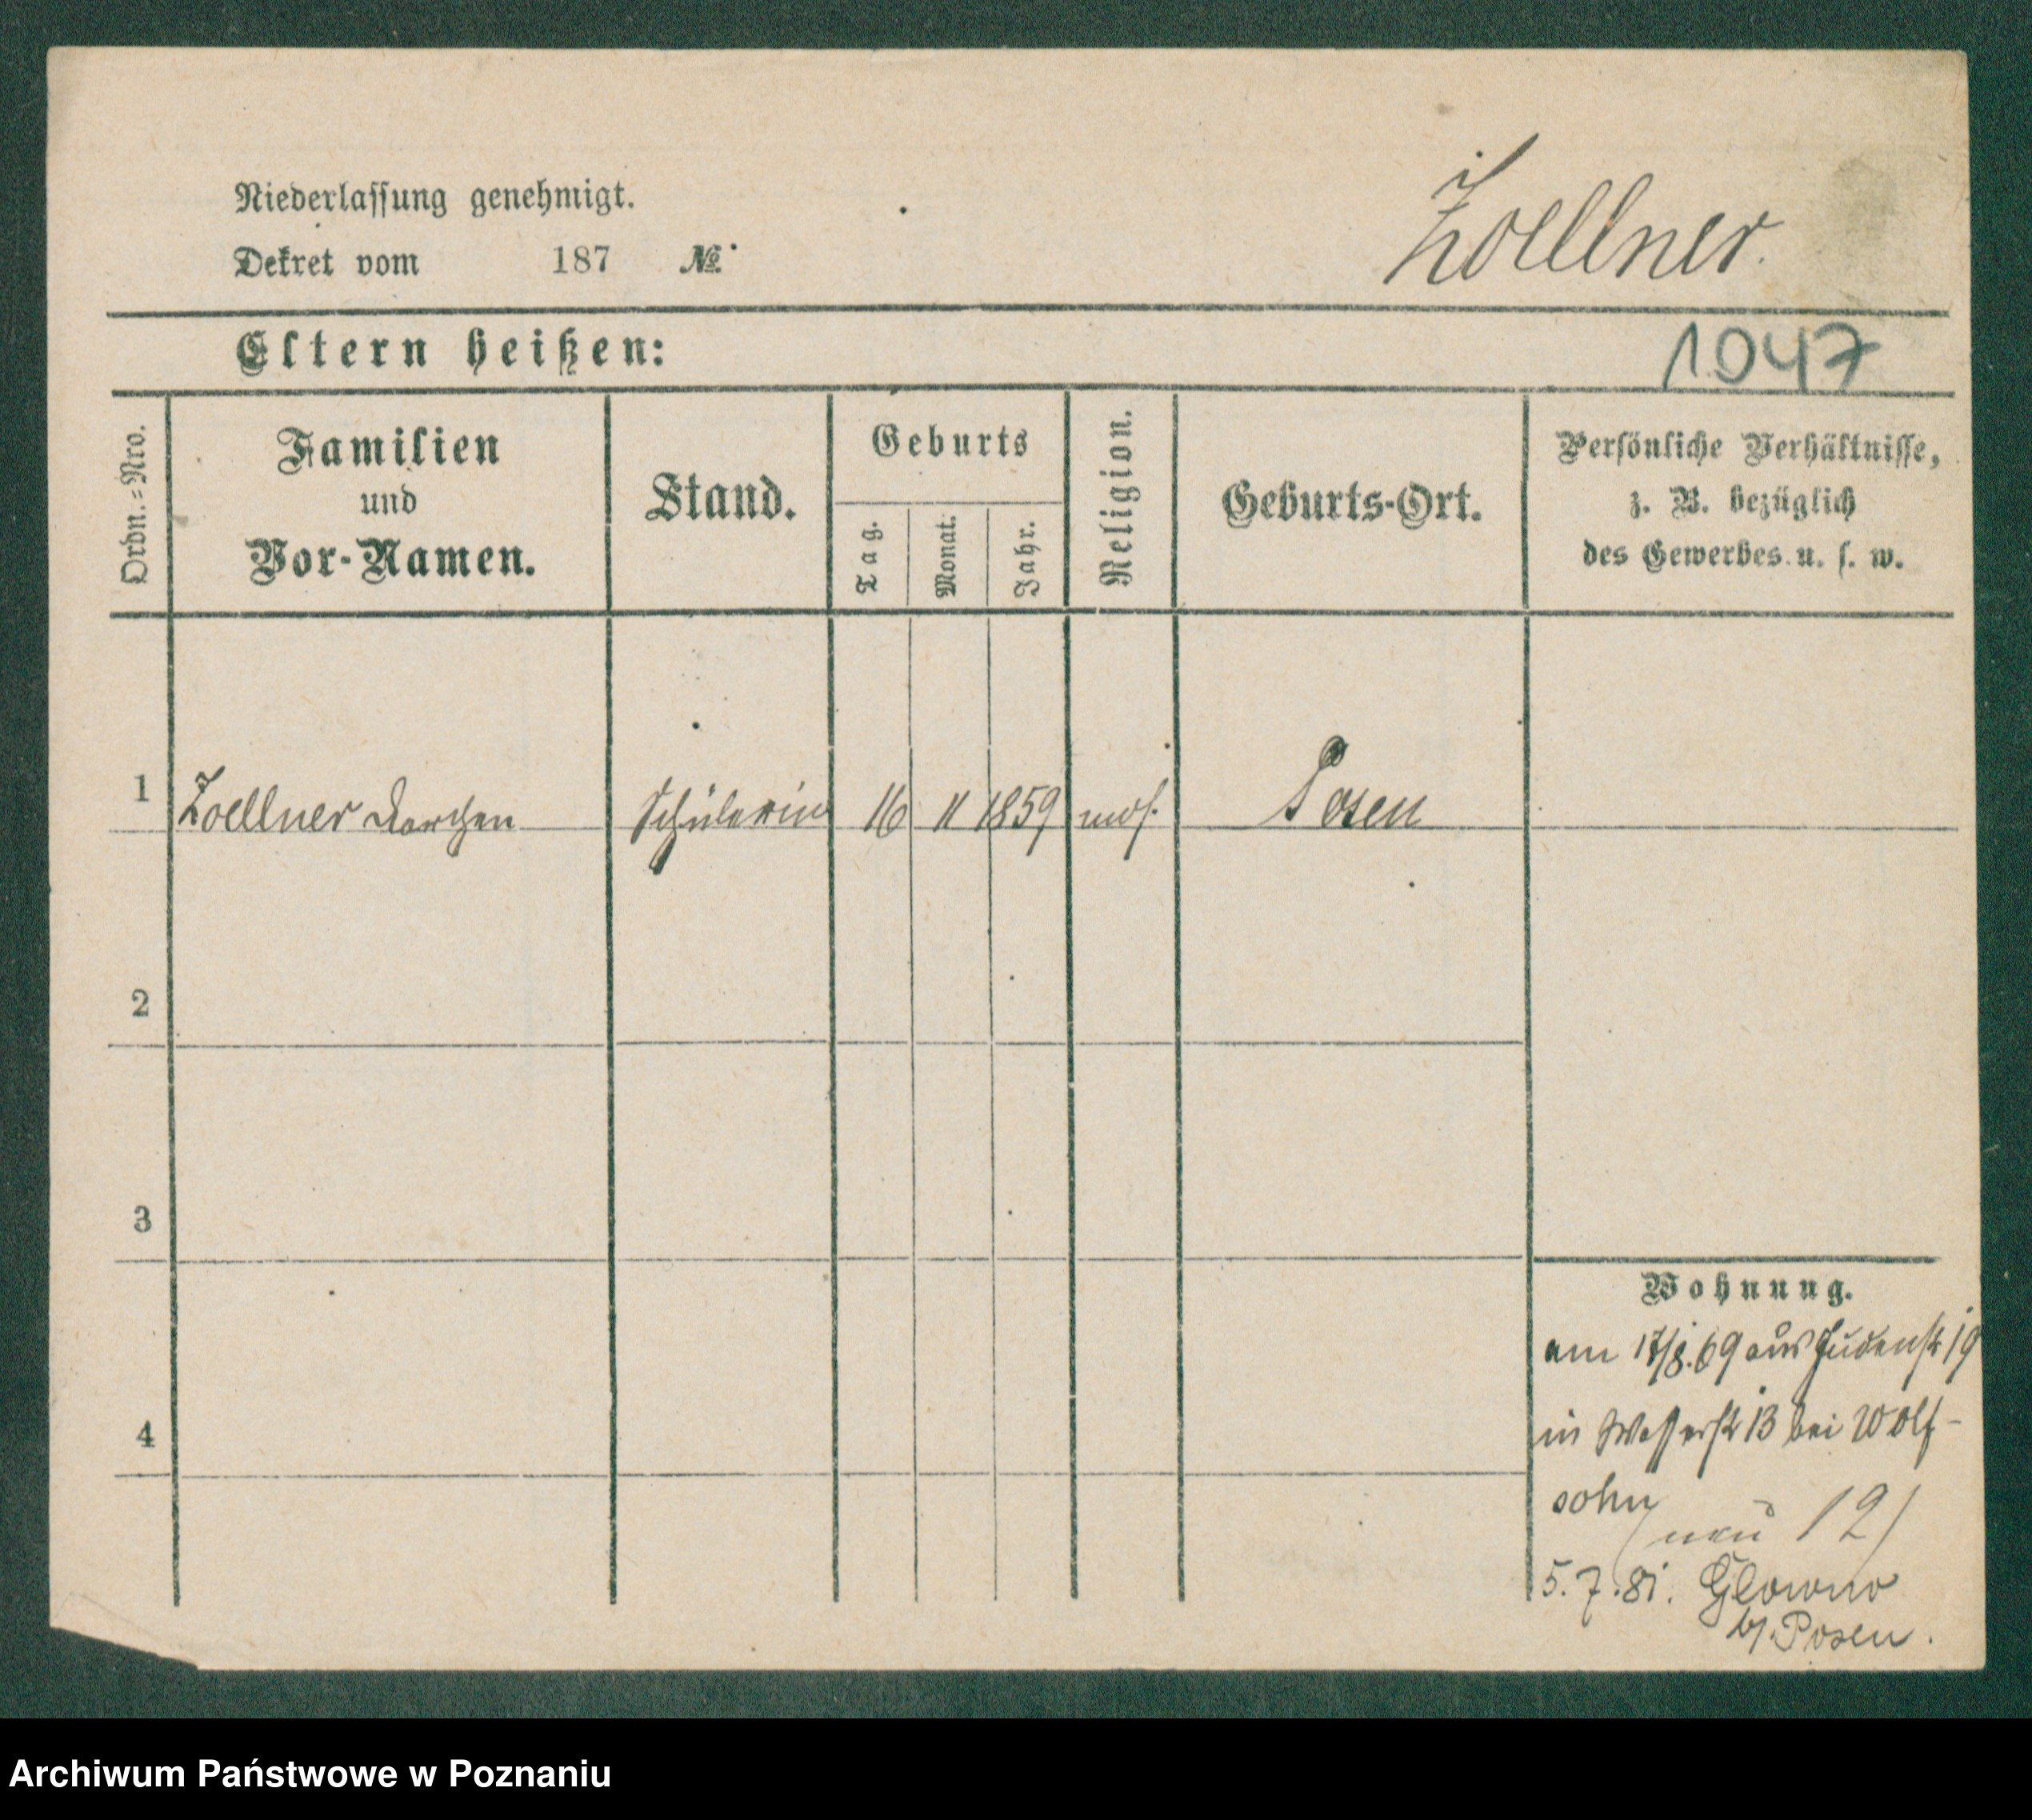 Niederlassung genehmigt.
Dekret vom 187 №
Zoellner.
Eltern heißen:
1047
Ordn.=Nro.
Familien
und
Vor-Namen.
Stand.
Geburts
Tag.
Monat.
Jahr.
Religion.
Geburts-Ort.
Persönliche Verhältnisse,
z. B. bezüglich
des Gewerbes u. s. w.
1 Zoellner Dorchen Schülerin 16 11 1859 mos. Posen
2
3
4
Wohnung.
am 17/8.69 aus Judenstr 19
in Wasserstr 13 bei Wolf-
sohn
(neu 12)
5.7.81. Glowno
b/. Posen.
Archiwum Państwowe w Poznaniu